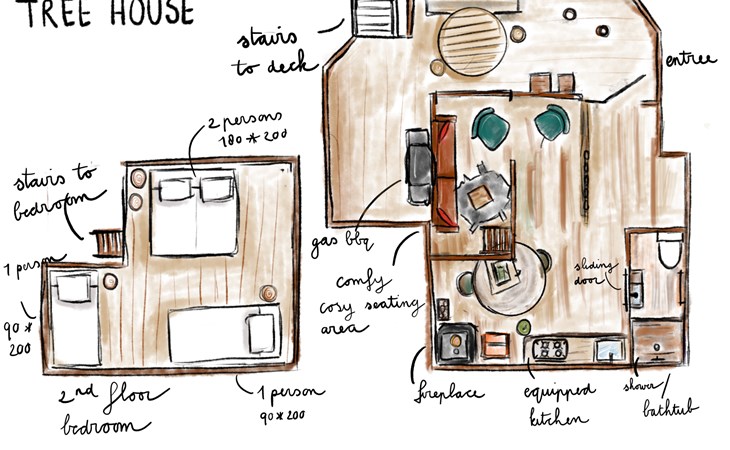 TREE HOUSE
stairs
to deck
entree
2 persons
180 * 200
stairs to
bedroom
1 person
90 *
200
2nd floor
bedroom
1 person
90 * 200
gas bbq
comfy
cosy seating
area
sliding
door
fireplace
equipped
kitchen
shower/
bathtub